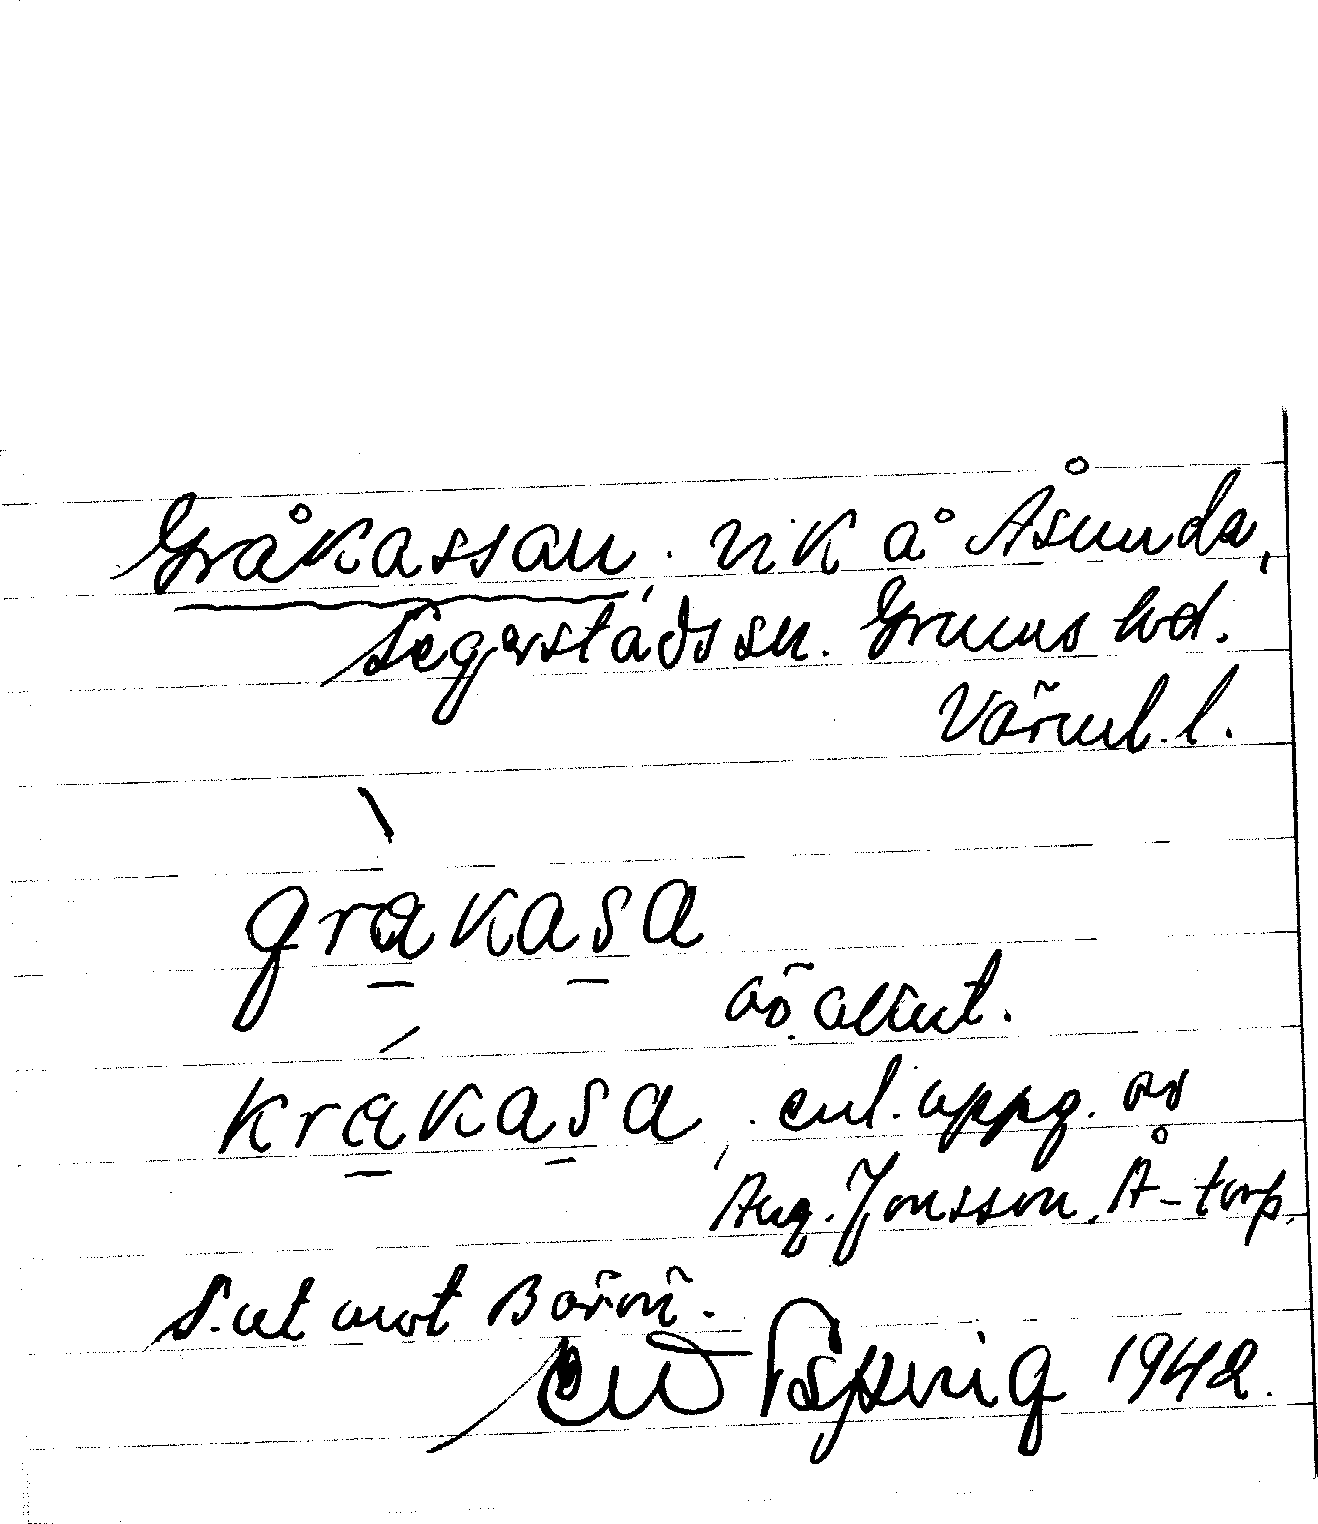 Gråkassan. vik å Åsunda,
Segerstads sn. Grums hd.
Värml. l.
gràkasa
ao. akut.
krákasa, enl. uppg. av
Aug. Jonsson, Å-torp.
S. ut mot Börön.
1942.